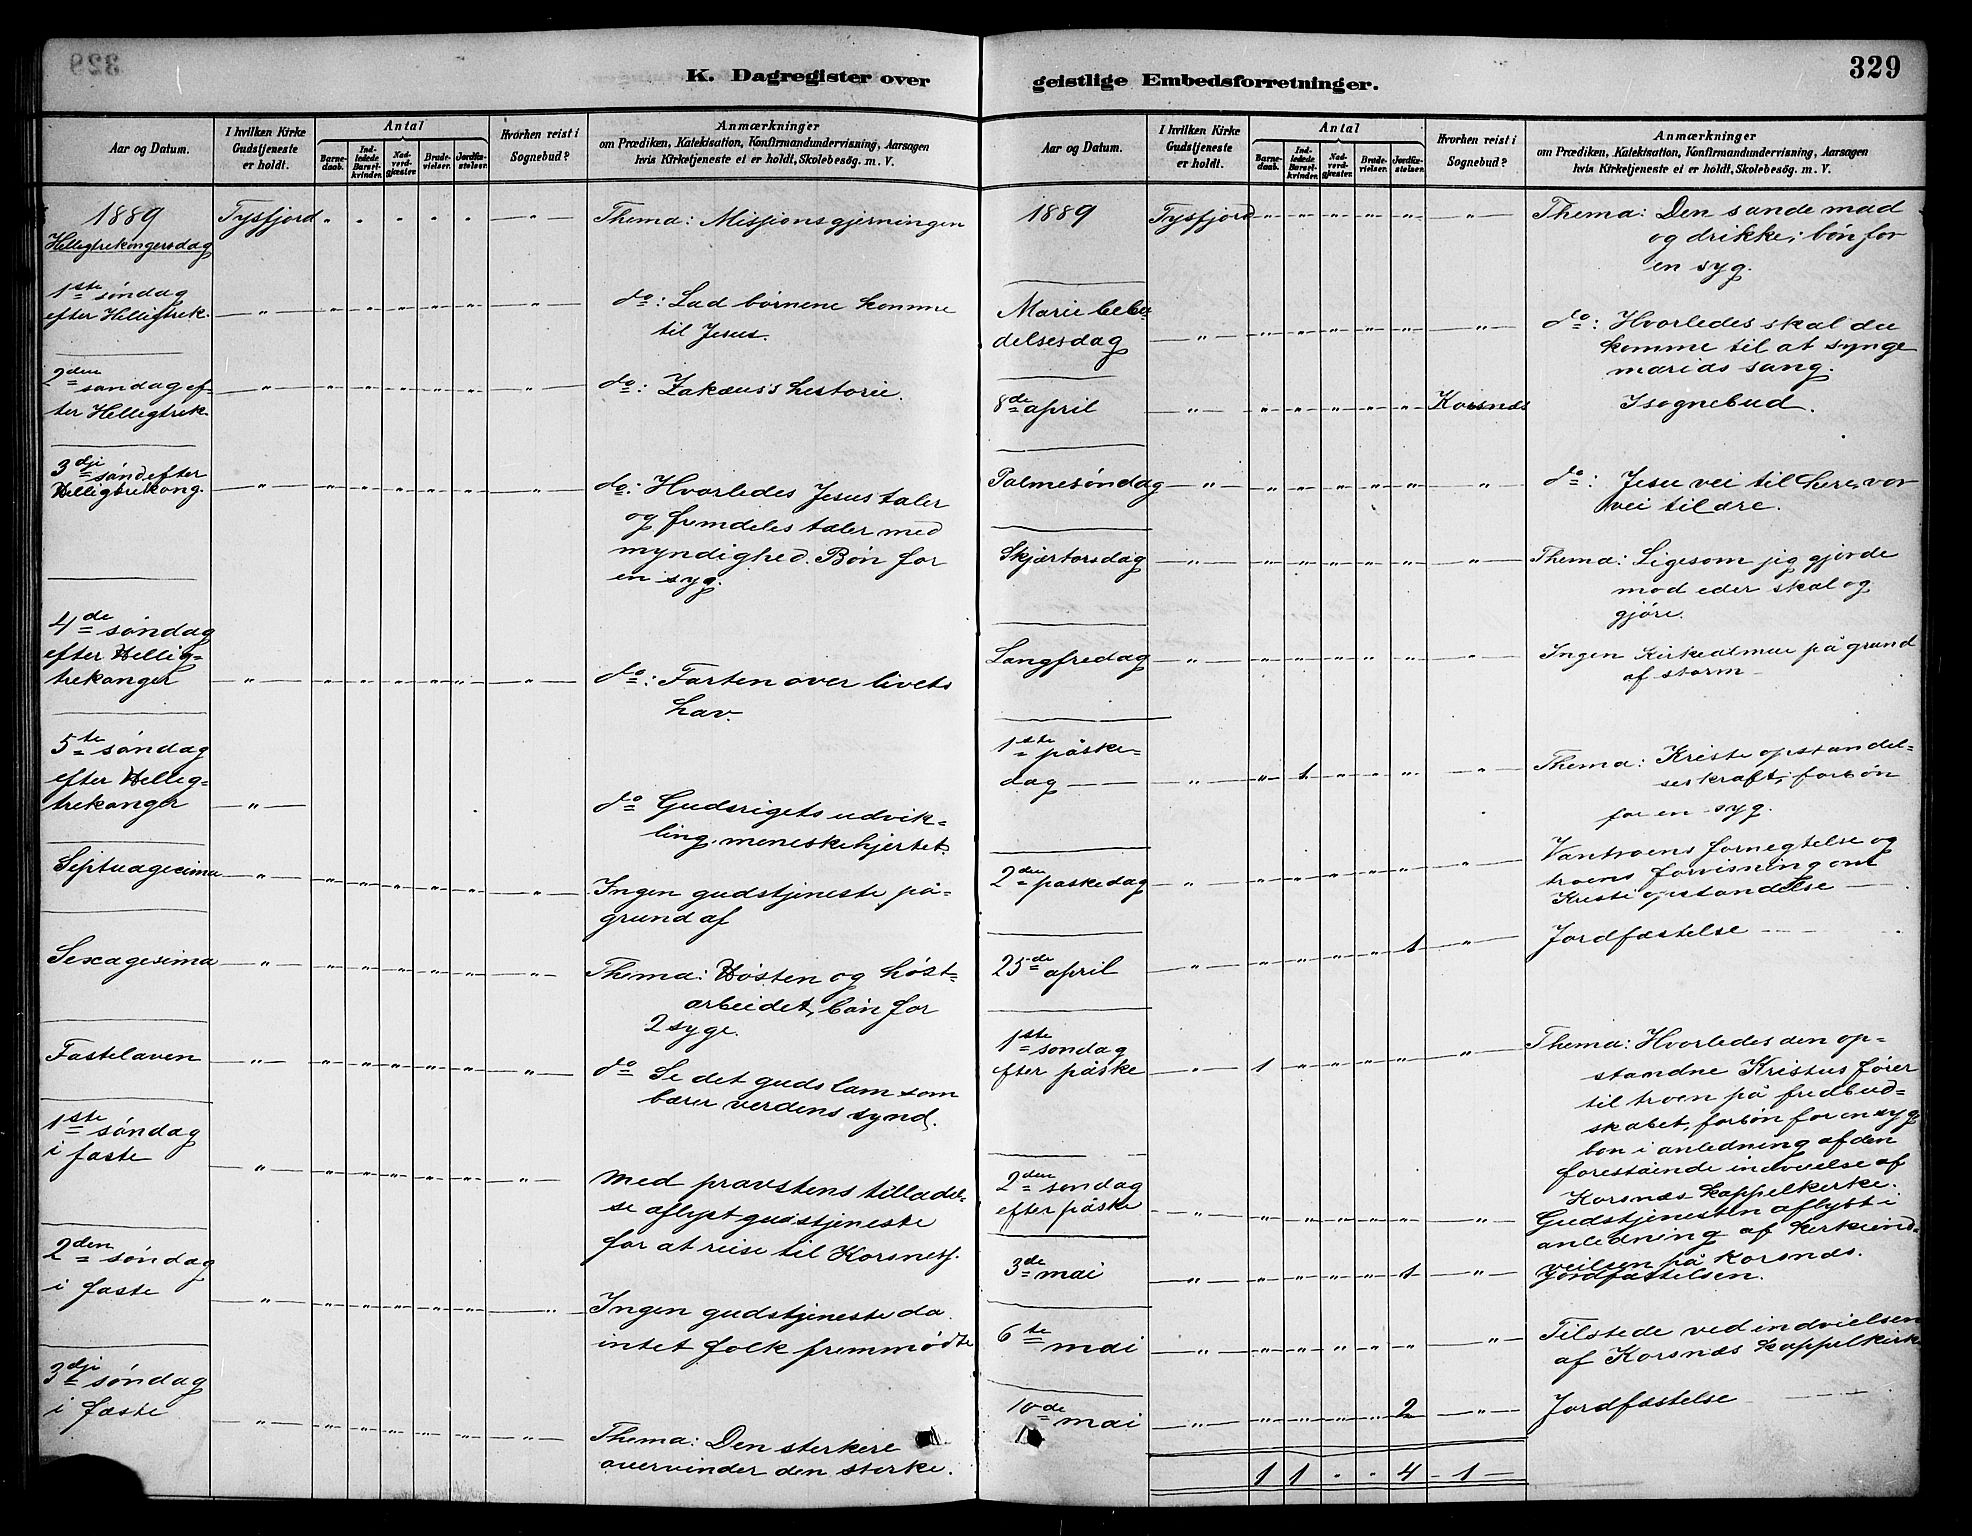 K. Dagregister over
Aar og Datum.
I hvilken Kirke Gudstjeneste er holdt.
Antal
Barnedaab.
Indledede Barselkvinder.
Nadverdgjæster.
Brudevielser.
Jordfæstelser.
Hvorhen reist i Sognebud?
Anmærkninger
om Prædiken, Katekisation, Konfirmandundervisning, Aarsagen
hvis Kirketjeneste ei er holdt, Skolebesøg. m. V.
1889 Tysfjord " " " " " " Thema: Missionsgjerningen
Helligtrekongersdag
1ste søndag
efter Helligtrek. " " " " " " " do: Lad børnene komme
til Jesus.
2den
søndag ef-
ter Helligtrek. " " " " " " " do: Zakæus's historie.
3dji sønd efter
Helligtrekong. " " " " " " " do: Hvorledes Jesus taler
og fremdeles taler med
myndighed. Bøn for
en syg.
4de søndag
efter Hellig-
trekonger " " " " " " " do: Farten over livets
hav.
5te søndag
efter Hellig-
trekonger " do Gudsrigets udvik-
ling i meneskehjertet.
Septuagecima " " " " " " " Ingen gudstjeneste på
grund af
Sexagesima " " " " " " " Thema: Høsten og høst-
arbeidet, bøn for
2 syge.
Fastelaven " " " " " " " do Se det guds lam som
bærer verdens synd.
1ste søndag
i faste " " " " " " " Med pravstens tilladel-
se aflyst gudstjeneste
for at reise til Korsnes.
2den søndag
i faste " " " " " " " Ingen gudstjeneste da
intet folk fremmødte
3dji søndag
i faste " " " " " " " Thema: Den sterkere
overvinder den sterke.
geistlige Embedsforretninger.
329
Aar og Datum.
I hvilken Kirke Gudstjeneste er holdt.
Antal
Barnedaab.
Indledede Barselkvinder.
Nadverdgjæster.
Brudevielser.
Jordfæstelser.
Hvorhen reist i Sognebud?
Anmærkninger
om Prædiken, Katekisation, Konfirmandundervisning, Aarsagen
hvis Kirketjeneste ei er holdt, Skolebesøg. m. V.
1889 Tysfjord " " " " " " Thema: Den sande mad
og drikke; bøn for
en syg.
Marie bebu-
delsesdag " " " " " " " do: Hvorledes skal du
komme til at synge
marias sang.
8de april " " " " " " Korsnæs I sognebud.
Palmesøndag " " " " " " " do: Jesu vei til ære, vor
vei til ære.
Skjærtorsdag " " " " " " " Thema: Ligesom jeg gjorde
mod eder skal og
gjøre.
Langfredag " " " " " " " Ingen Kirkealmue på grund
af storm
1ste påske-
dag " " 1 " " " " Thema: Kristi opstandel-
seskraft; forbøn
for en syg.
2den paskedag " " " " " " " Vantroens fornegtelse og
troens forvisning om
Kristi opstandelse
25de april " " " " " 1 " Jordfæstelse
1ste søndag
efter påske " 1 " " " " " Thema: Hvorledes den op-
standne Kristus fører
til troen på fredbud-
skabet, forbøn for en syg
bøn i anledning af den
forestående indvielse af
Korsnæs kappelkirke.
2den søndag
efter påske " " " " " " " Gudstjenesten aflyst i
anledning af kirkeind-
veilsen på Korsnæs.
3de mai " " " " " 1 " Jordfæstelsen.
6te mai " " " " " " " Tilstede ved indvielsen
af Korsnæs kappelkirk
10de mai " " " " " 2 " Jordfæstelse
1 1 " " 4 1